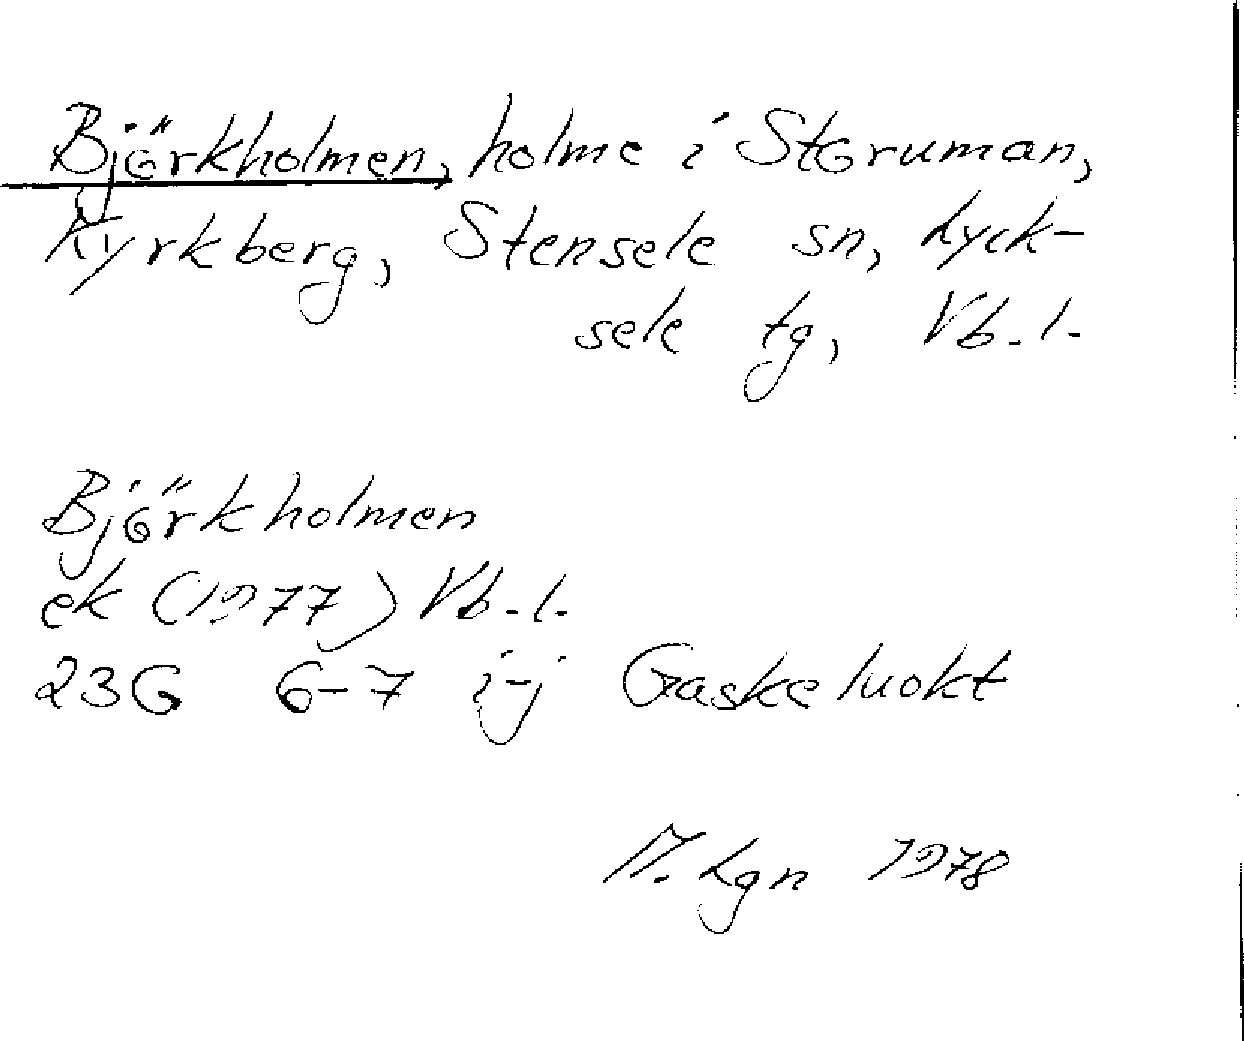 Björkholmen, holme i Storuman,
Kyrkberg, Stensele sn, Lyck-
sele tg, Vb. l.
Björkholmen
ek (1977) Vb. l.
23G 6-7 i-j Gaskeluokt
M. Lgn 1978